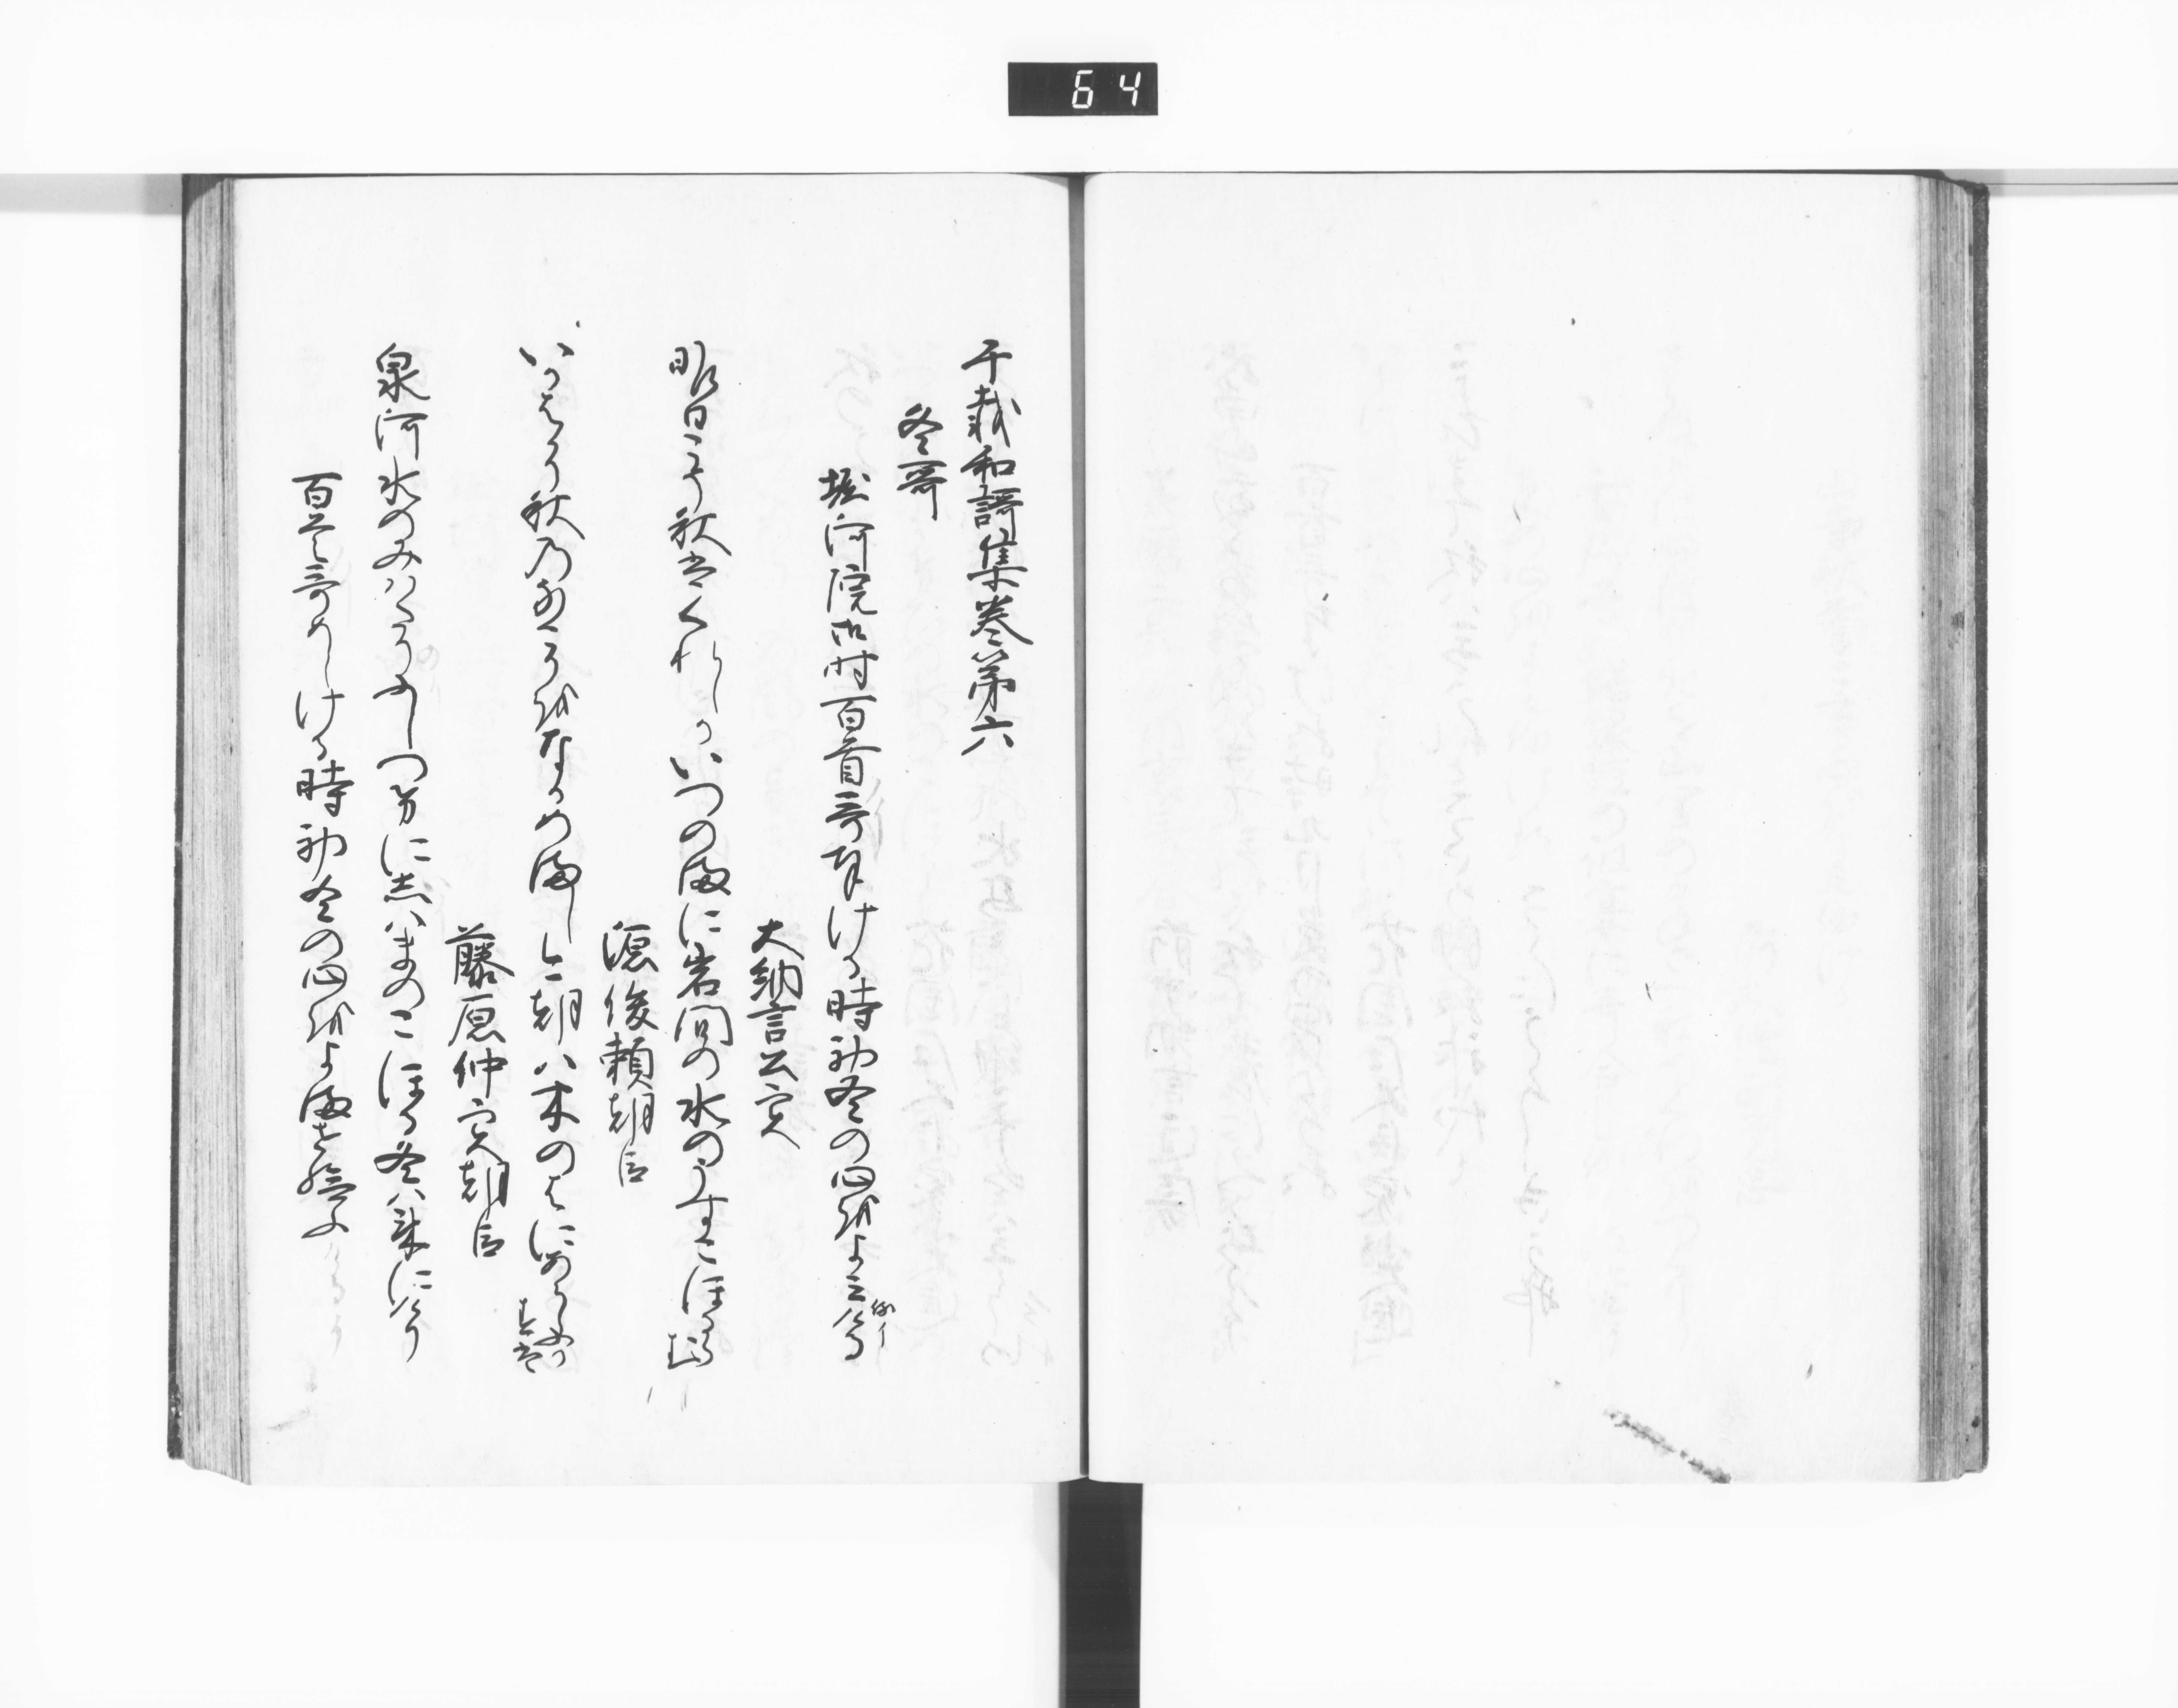 64
千載和謌集巻第六
冬哥
堀河院御時百首哥有ける時初冬の心をよミ侍る
大納言公実
昨日こそ秋はくれしかいつの満に岩間の水のうすこほるらむ
源俊頼朝臣
いかはかり秋乃なこりをなかめ満し今朝ハ木のはにあらしふかすは
藤原仲実朝臣
泉河水のみハたのふしつけに志ハまのこほる冬ハ来にけり
百首哥めしける時初冬の心をよ満せ給ふ